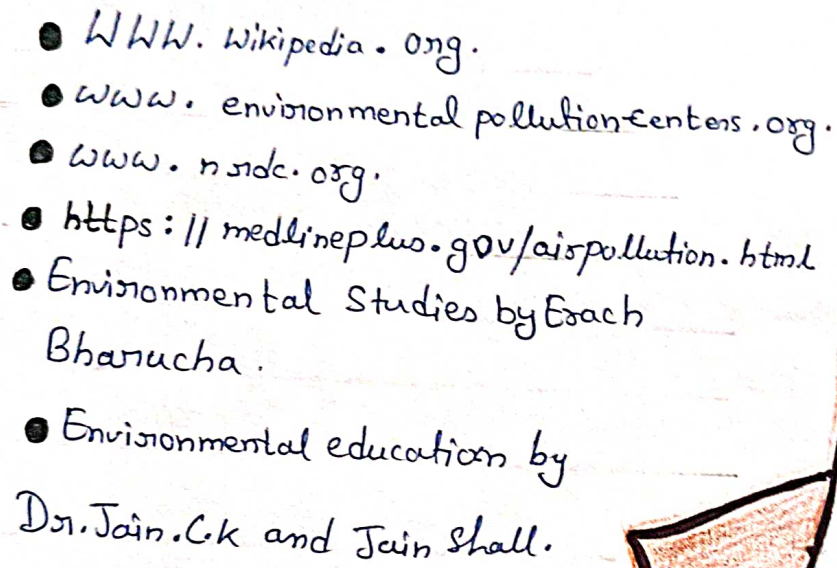 • WWW. Wikipedia. org.
• www. environmental pollution centers. org.
• www. nrdc. org.
• https: // medlineplus.gov/airpollution. html
• Environmental Studies by Erach
Bharucha.
• Environmental education by
Dr. Jain. C.K and Jain Shall.